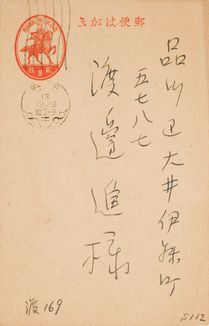 郵便はがき
品川区大井伊藤町
五七八七
渡邊進様
渡169
S112